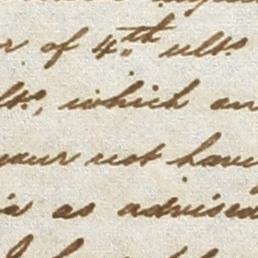 r of 4th ulto
lto, which an
your not havi
ia as advised